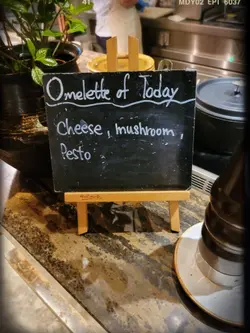 MDY02 EPT 6037
Omelette of Today
Cheese, mushroom,
Pesto